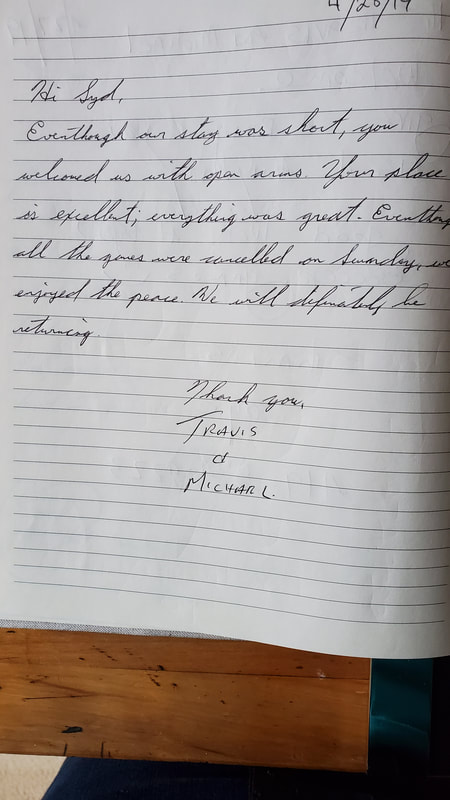 4/28/19
Hi Syd,
Eventhough our stay was short, you
welcomed us with open arms. Your place
is excellent; everything was great. Eventhoug
all the games were cancelled on Sunday, we
enjoyed the peace. We will definately be
returning.
Thank you,
TRAVIS
&
MICHAEL.